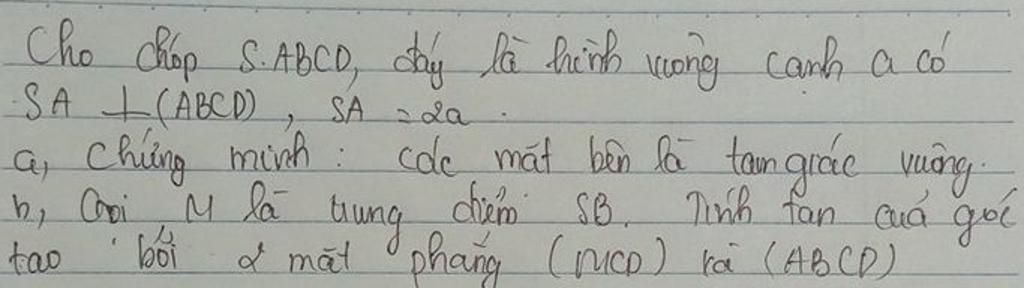 Cho chóp S.ABCD, đáy là hình vuông cạnh a có
SA ⊥ (ABCD), SA = 2a.
a, Chứng minh: các mặt bên là tam giác vuông.
b, Gọi M là trung điểm SB. Tính tan của góc
tạo bởi 2 mặt phẳng (MCD) và (ABCD)